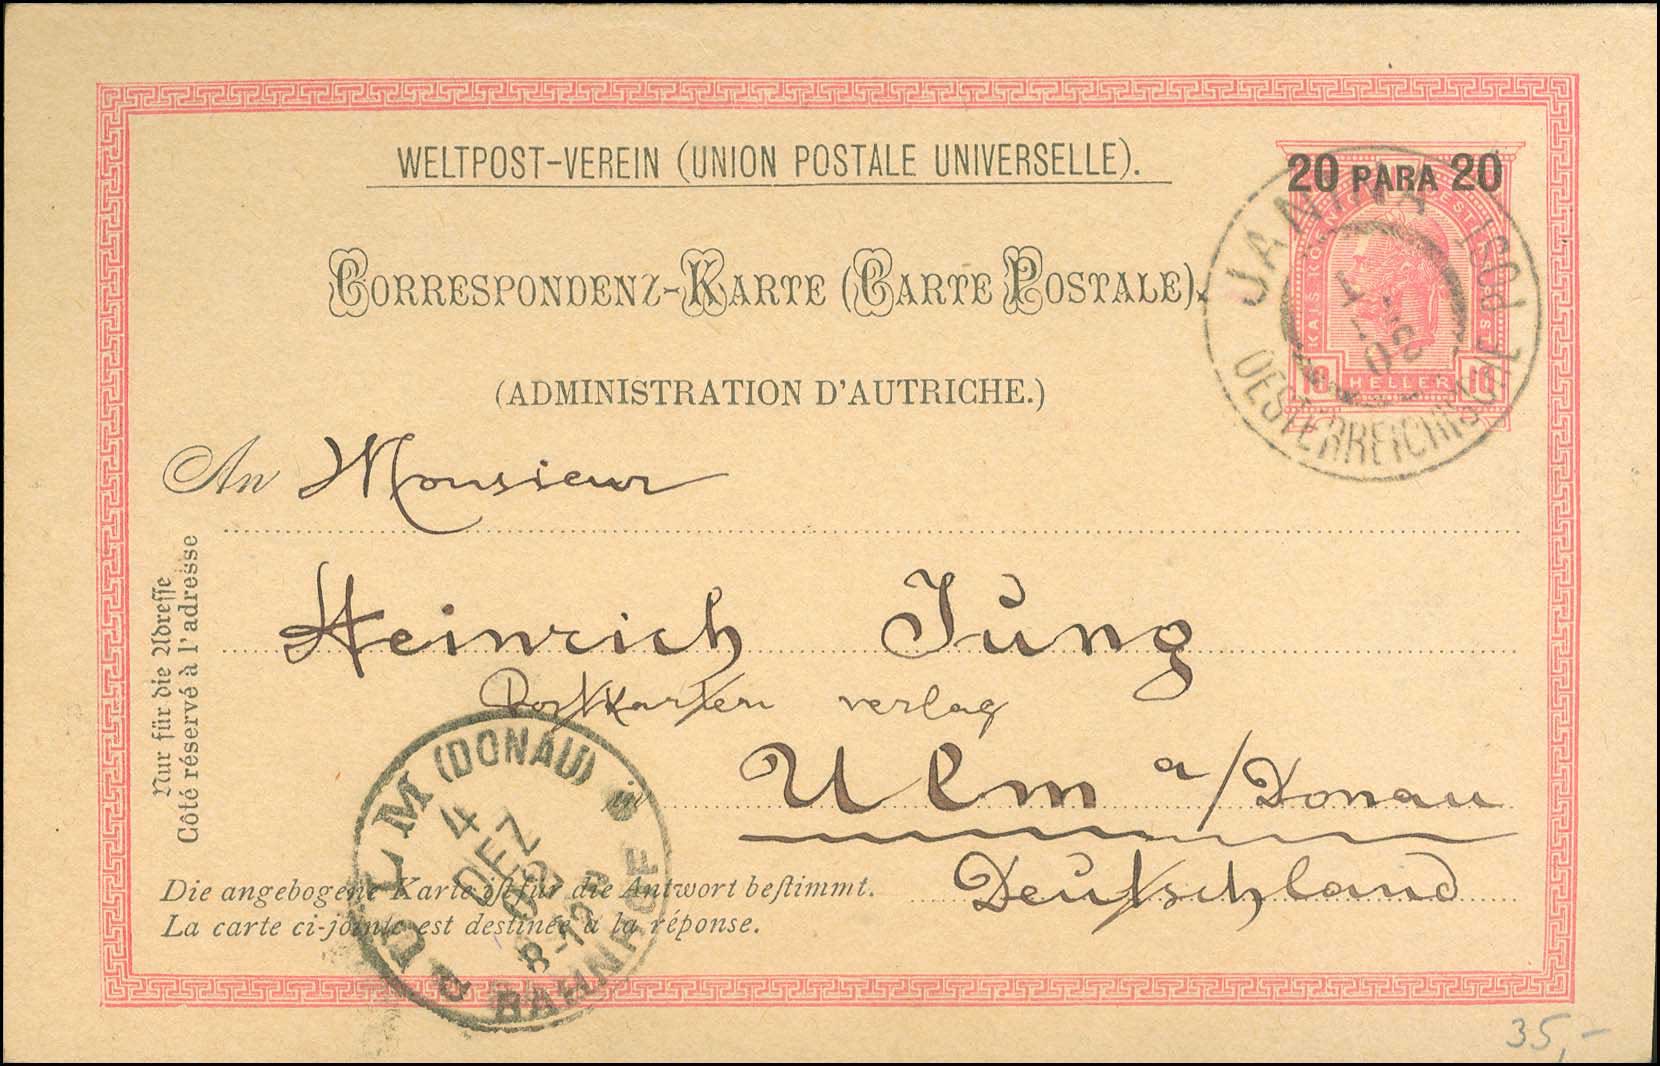 WELTPOST-VEREIN (UNION POSTALE UNIVERSELLE).
20 PARA 20
KAIS. KOENIGL. OESTERR. POST
10 HELLER 10
JANINA
OESTERREICHISCHE POST
CORRESPONDENZ-KARTE (CARTE POSTALE).
(ADMINISTRATION D'AUTRICHE.)
An Monsieur
Heinrich Jung
Postkarten verlag
in Ulm a/Donau
Deutschland
Nur für die Adresse
Côté réservé à l'adresse
ULM (DONAU)
4
DEZ
02
8-12
BAHNHOF
Die angebogene Karte ist für die Antwort bestimmt.
La carte ci-jointe est destinée à la réponse.
35,-